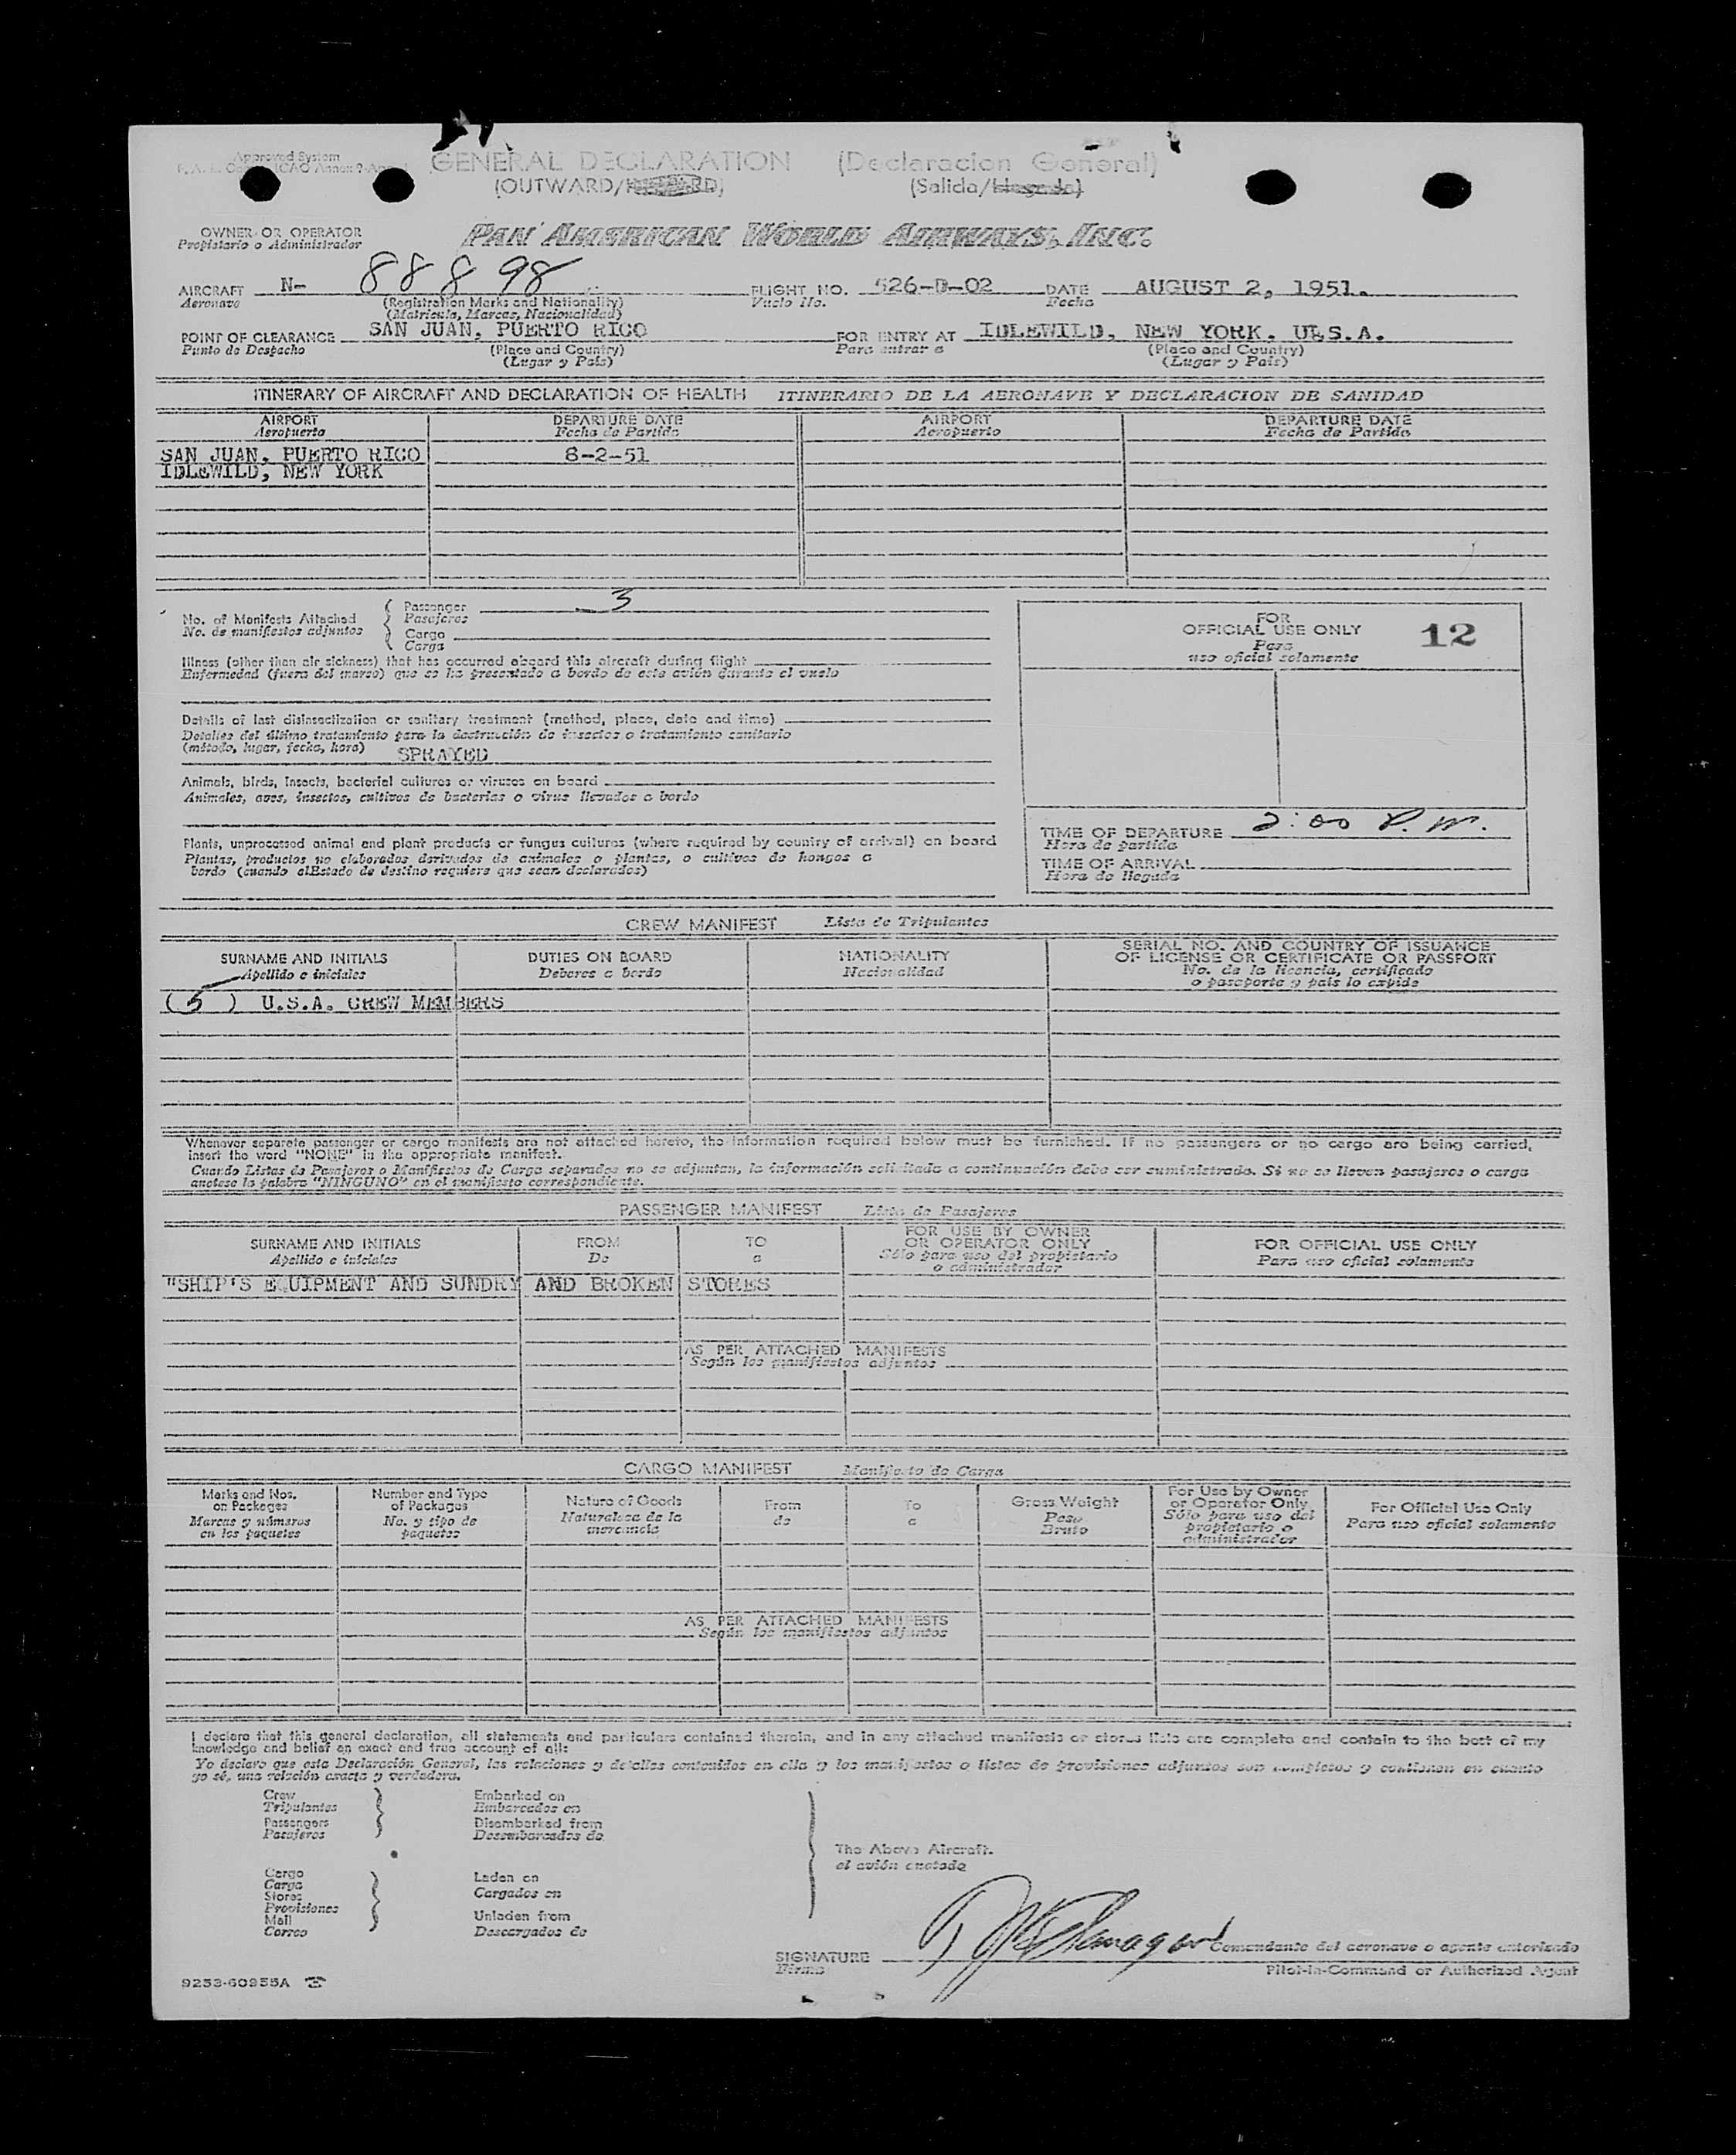 Approved System
GENERAL DECLARATION (Declaracion General)
(OUTWARD/ (Salida/
OWNER OR OPERATOR
Propietario o Administrador
PAN AMERICAN WORLD AIRWAYS, INC.
AIRCRAFT N- 88898 FLIGHT NO. 526-D-02 DATE AUGUST 2, 1951.
Aeronave (Registration Marks and Nationality) Vuelo No. Fecha
(Matricula, Marcas, Nacionalidad)
POINT OF CLEARANCE SAN JUAN, PUERTO RICO FOR ENTRY AT IDLEWILD, NEW YORK. U.S.A.
Punto de Despacho (Place and Country) Para entrar a (Place and Country)
(Lugar y País) (Lugar y País)
ITINERARY OF AIRCRAFT AND DECLARATION OF HEALTH ITINERARIO DE LA AERONAVE Y DECLARACION DE SANIDAD
AIRPORT DEPARTURE DATE AIRPORT DEPARTURE DATE
Aeropuerto Fecha de Partida Aeropuerto Fecha de Partida
SAN JUAN, PUERTO RICO 8-2-51
IDLEWILD, NEW YORK
No. of Manifests Attached
No. de manifiestos adjuntos
Passenger 3
Pasajeros
Cargo
Carga
FOR
OFFICIAL USE ONLY 12
Para
uso oficial solamente
Illness (other than air sickness) that has occurred aboard this aircraft during flight
Enfermedad (fuera del mareo) que se ha presentado a bordo de este avión durante el vuelo
Details of last disinsectization or sanitary treatment (method, place, date and time)
Detalles del último tratamiento para la destrucción de insectos o tratamiento sanitario
(método, lugar, fecha, hora) SPRAYED
Animals, birds, insects, bacterial cultures or viruses on board
Animales, aves, insectos, cultivos de bacterias o virus llevados a bordo
Plants, unprocessed animal and plant products or fungus cultures (where required by country of arrival) on board
Plantas, productos no elaborados derivados de animales o plantas, o cultivos de hongos a
bordo (cuando elEstado de destino requiera que sean declarados)
TIME OF DEPARTURE 2:00 P.M.
Hora de partida
TIME OF ARRIVAL
Hora de llegada
CREW MANIFEST Lista de Tripulantes
SURNAME AND INITIALS DUTIES ON BOARD NATIONALITY SERIAL NO. AND COUNTRY OF ISSUANCE
OF LICENSE OR CERTIFICATE OR PASSPORT
Apellido e iniciales Deberes a bordo Nacionalidad No. de la licencia, certificado
o pasaporte y país lo expide
(5) U.S.A. CREW MEMBERS
Whenever separate passenger or cargo manifests are not attached hereto, the information required below must be furnished. If no passengers or no cargo are being carried,
insert the word "NONE" in the appropriate manifest.
Cuando Listas de Pasajeros o Manifiestos de Carga separados no se adjuntan, la información solicitada a continuación debe ser suministrada. Si no se llevan pasajeros o carga
anotese la palabra "NINGUNO" en el manifiesto correspondiente.
PASSENGER MANIFEST Lista de Pasajeros
SURNAME AND INITIALS FROM TO FOR USE BY OWNER
OR OPERATOR ONLY FOR OFFICIAL USE ONLY
Apellido e iniciales De a Sólo para uso del propietario
o administrador Para uso oficial solamente
"SHIP'S EQUIPMENT AND SUNDRY AND BROKEN STORES
AS PER ATTACHED MANIFESTS
Según los manifiestos adjuntos
CARGO MANIFEST Manifiesto de Carga
Marks and Nos.
on Packages
Marcas y números
en los paquetes
Number and Type
of Packages
No. y tipo de
paquetes
Nature of Goods
Naturaleza de la
mercancía
From
de
To
a
Gross Weight
Peso
Bruto
For Use by Owner
or Operator Only
Sólo para uso del
propietario o
administrador
For Official Use Only
Para uso oficial solamente
AS PER ATTACHED MANIFESTS
Según los manifiestos adjuntos
I declare that this general declaration, all statements and particulars contained therein, and in any attached manifests or stores lists are complete and contain to the best of my
knowledge and belief an exact and true account of all:
Yo declaro que esta Declaración General, las relaciones y detalles contenidos en ella y los manifiestos o listas de provisiones adjuntos son completos y contienen en cuanto
yo sé, una relación exacta y verdadera.
Crew
Tripulantes
Passengers
Pasajeros
Embarked on
Embarcados en
Disembarked from
Desembarcados de
Cargo
Carga
Stores
Provisiones
Mail
Correo
Laden on
Cargados en
Unladen from
Descargados de
The Above Aircraft.
el avión anotado
SIGNATURE Comandante del aeronave o agente autorizado
Firma Pilot-in-Command or Authorized Agent
9253-60955A